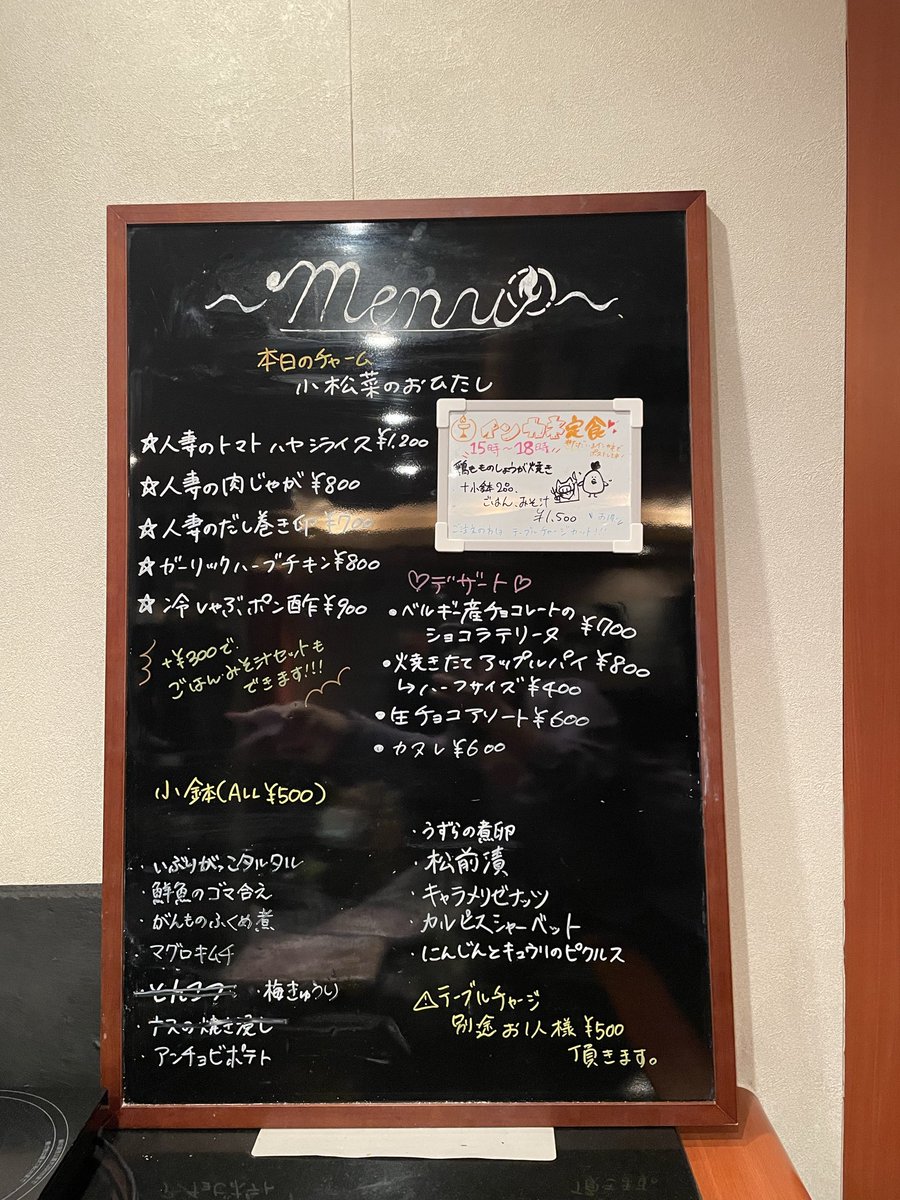 ~Menu~
本日のチャーム
小松菜のおひたし
☆人妻のトマトハヤシライス¥1,200
☆人妻の肉じゃが¥800
☆人妻のだし巻き卵¥700
☆ガーリックハーブチキン¥800
☆冷しゃぶポン酢¥900
+¥300で
ごはんみそ汁セットも
できます!!!
定食
15時~18時
鶏もものしょうが焼き
+小鉢2品、
ごはん、みそ汁
¥1,500
テーブルチャージカット!!!
♡デザート♡
•ベルギー産チョコレートの
ショコラテリーヌ ¥700
•焼きたてアップルパイ ¥800
↳ハーフサイズ¥400
•生チョコアソート¥600
•カヌレ¥600
小鉢(ALL¥500)
・いぶりがっこタルタル
・鮮魚のゴマ合え
・がんものふくめ煮
・マグロキムチ
・梅きゅうり
・ナスの焼き浸し
・アンチョビポテト
・うずらの煮卵
・松前漬
・キャラメリゼナッツ
・カルピスシャーベット
・にんじんとキュウリのピクルス
⚠テーブルチャージ
別途お1人様¥500
頂きます。